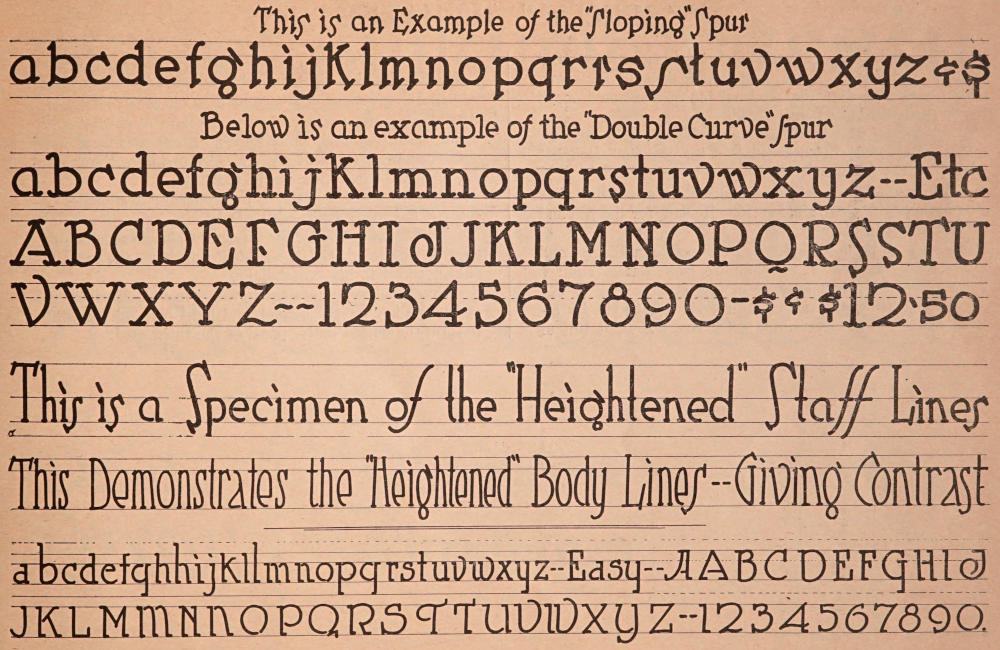 This is an Example of the "Sloping" Spur
abcdefghijklmnopqrrssstuvwxyz¢$
Below is an example of the "Double Curve" Spur
abcdefghijklmnopqrstuvwxyz--Etc
ABCDEFGHIJJKLMNOPQRSSTU
VWXYZ--1234567890-$¢ $12.50
This is a Specimen of the "Heightened" Staff Lines
This Demonstrates the "Heightened" Body Lines--Giving Contrast
abcdefghhijkllmnopqrstuvwxyz--Easy--AABCDEFGHIJ
JKLMMNNOPQRSTTUVWXYZ--1234567890.